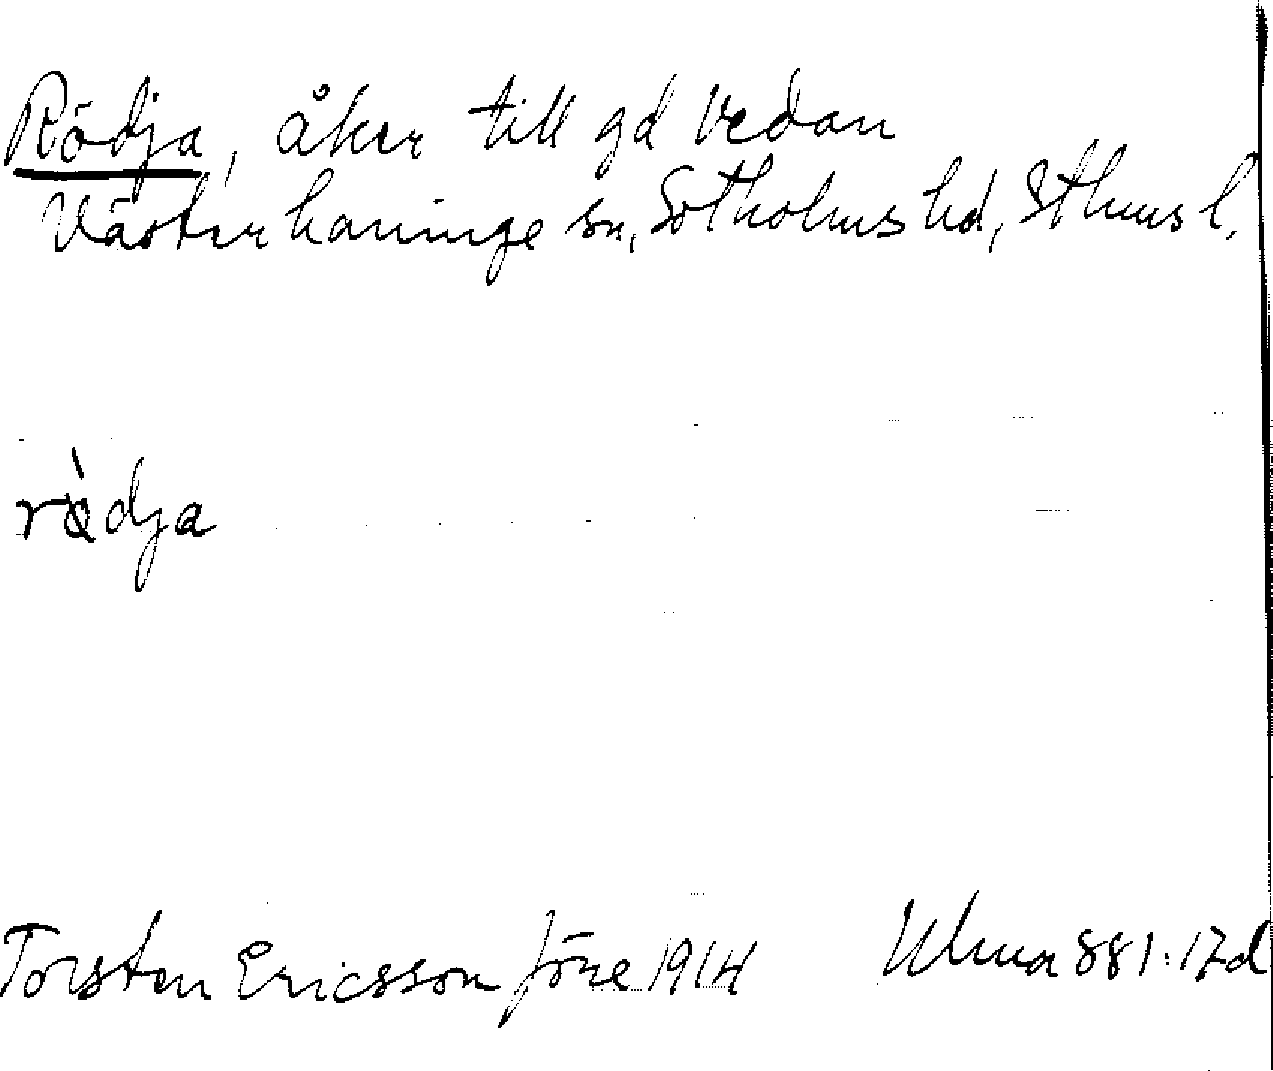 Rödja, åker till gd Vedan
Västerhaninge sn, Sotholms hd, Sthms l.
rödja
Torsten Ericsson före 1914 Ulma 881:17d